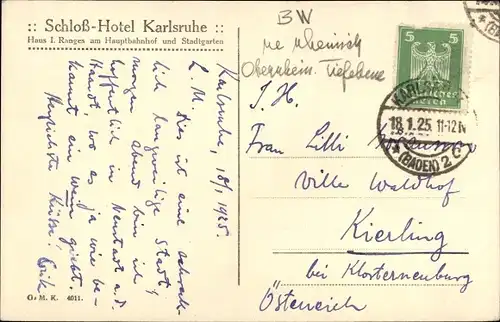 :: Schloß-Hotel Karlsruhe ::
Haus I. Ranges am Hauptbahnhof und Stadtgarten
BW
rheinisch
Oberrhein. Tiefebene
5 5
KARLSRUHE
18.1.25. 11-12 N
* (BADEN) 2
Karlsruhe, 18/1 1925.
L. M. Dies ist eine schreck-
lich langweilige Stadt,
morgen abend bin ich
hoffentlich in Neustadt a. d.
Haardt, wo es ja wie be-
kannt ein Wein giebt.
Herzlichste
Küsse! Erik
G. M. K. 4011.
I. H.
Frau Lilli
Ville Waldhof
Kierling
bei Klosterneuburg
Österreich